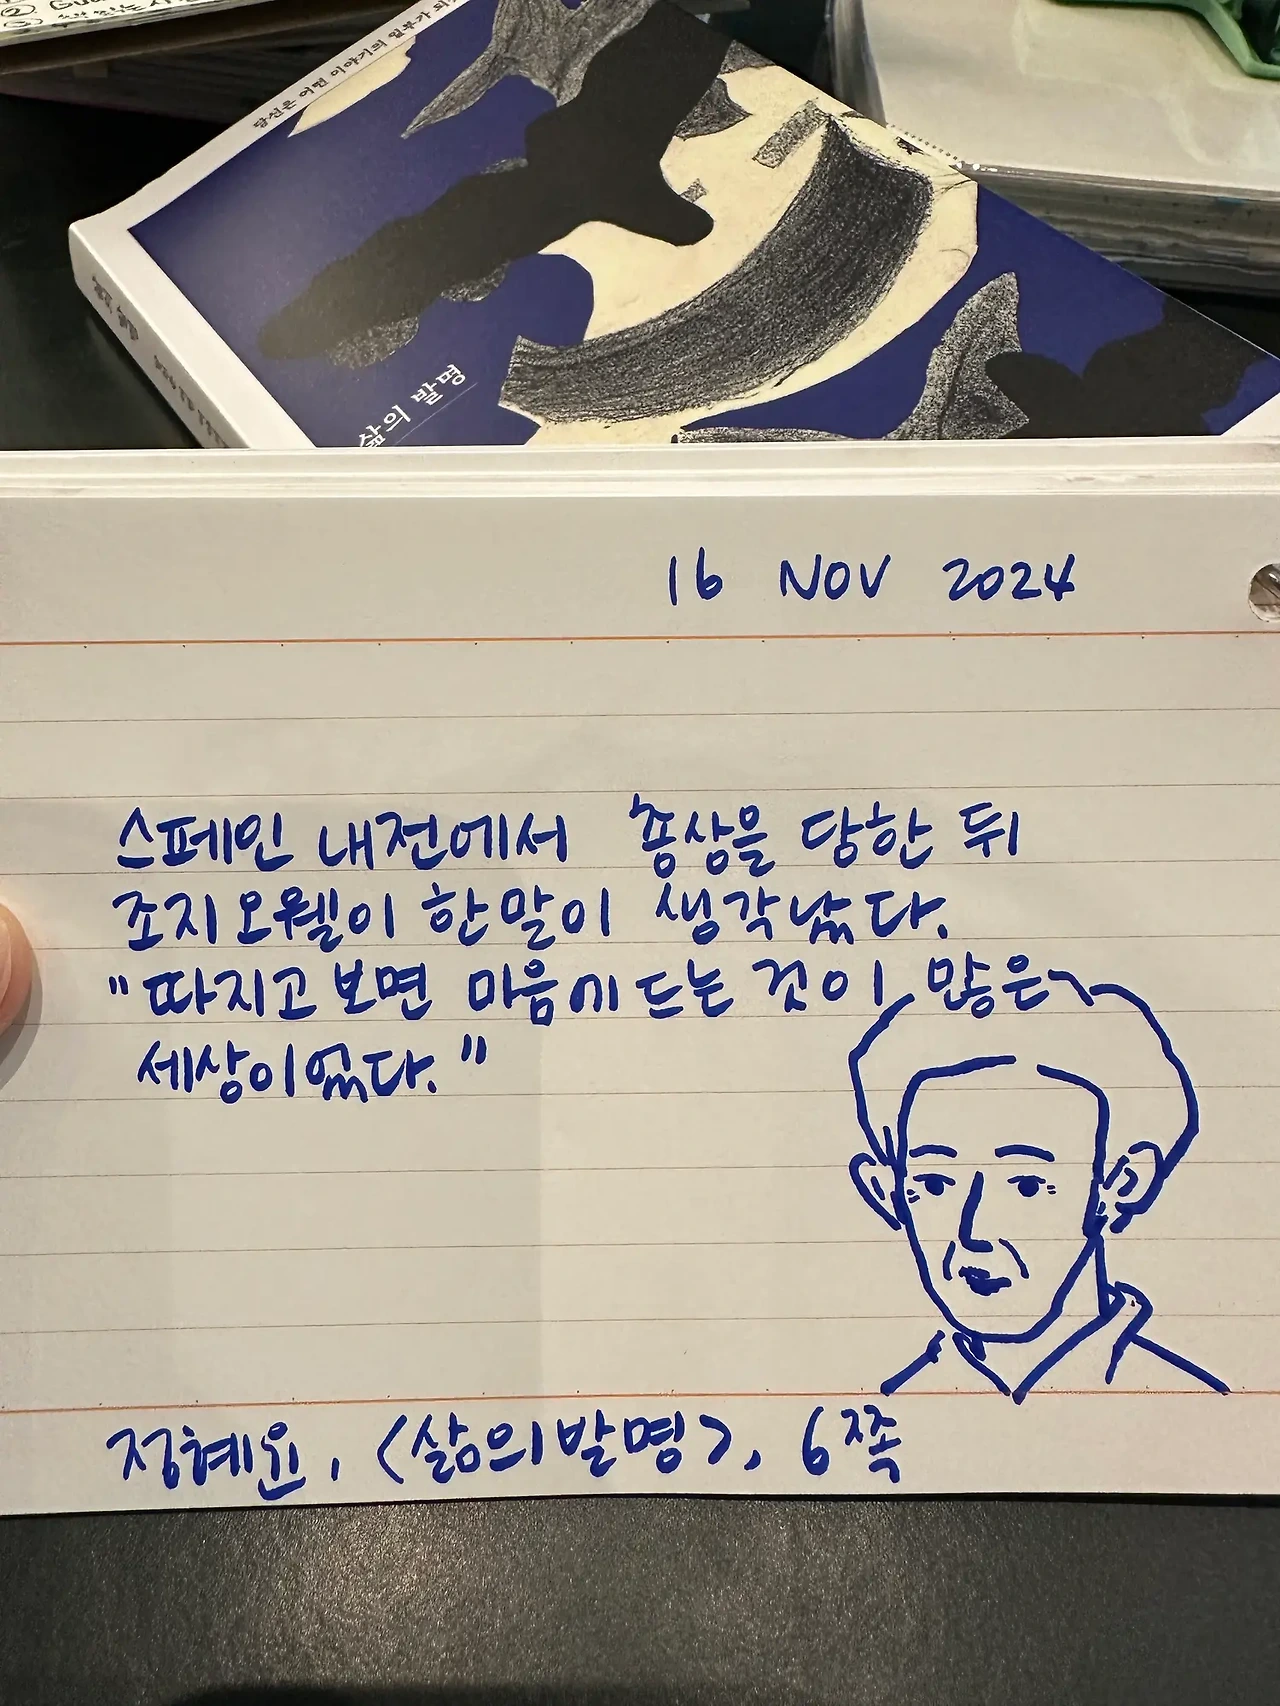 당신은 어떤 이야기의 일부가
삶의 발명
16 NOV 2024
스페인 내전에서 총상을 당한 뒤
조지오웰이 한말이 생각났다.
"따지고보면 마음에 드는 것이 많은
세상이었다."
정혜윤, <삶의 발명>, 6쪽